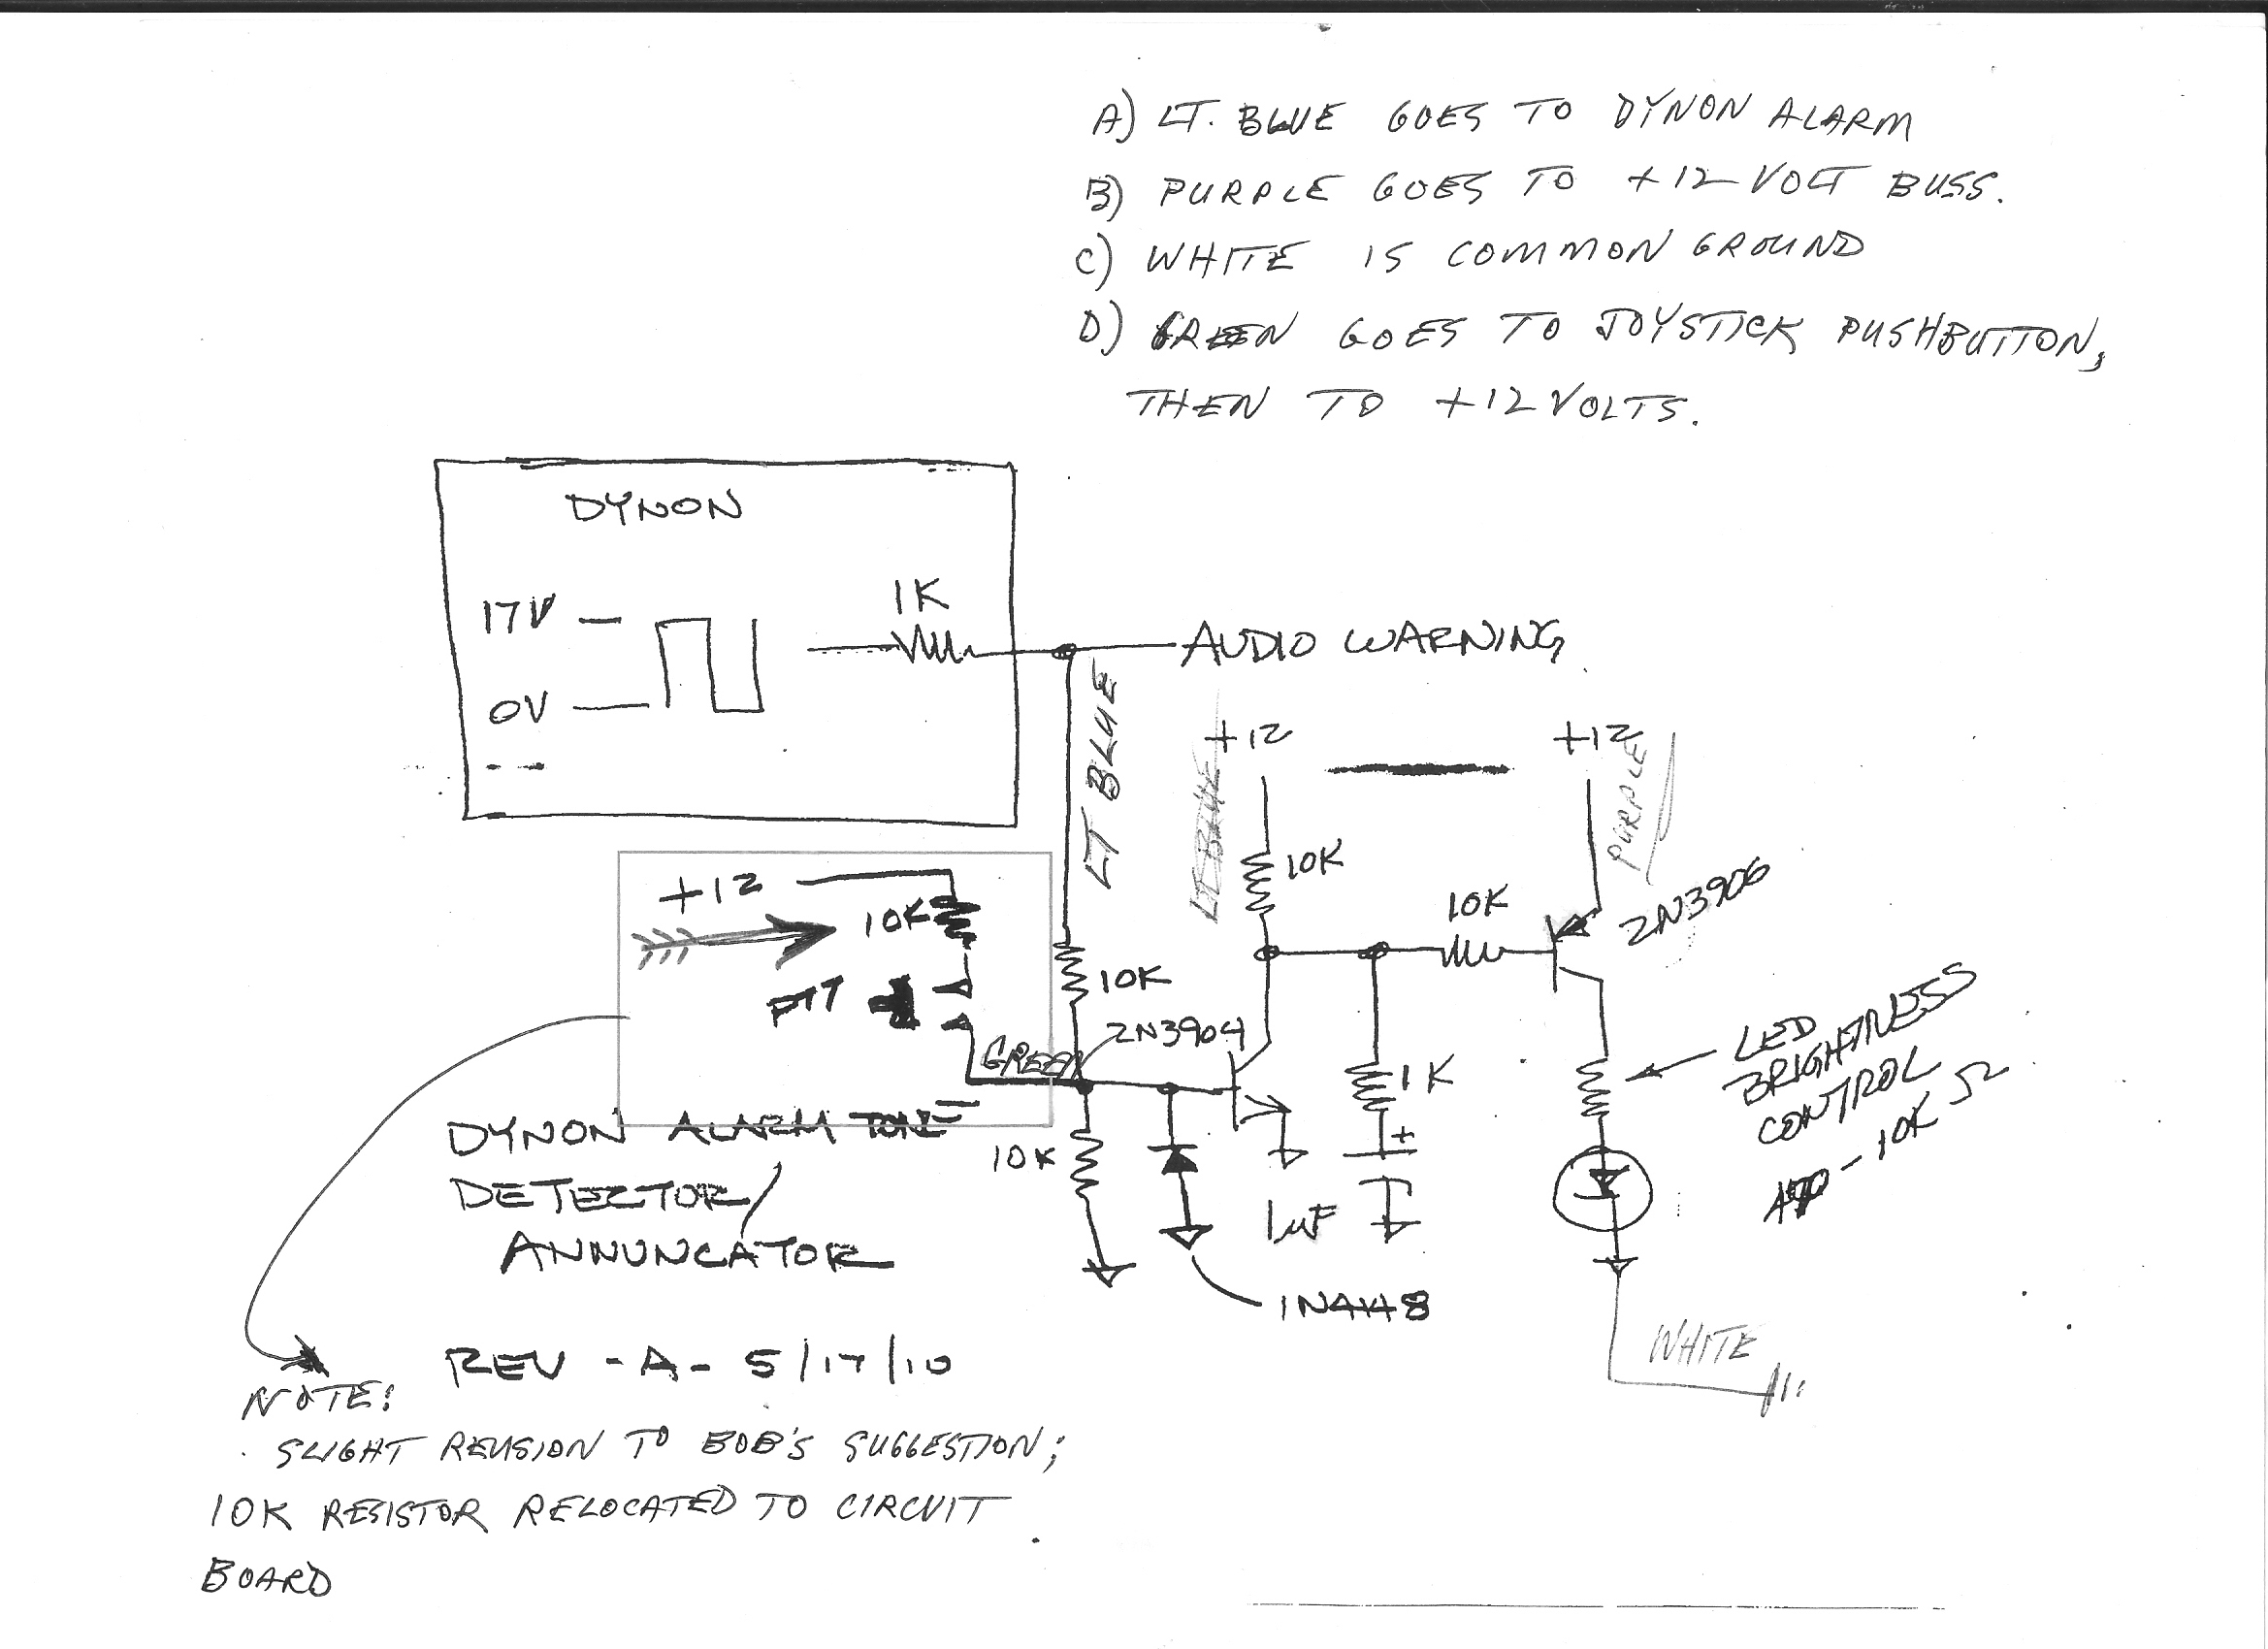 A) LT. BLUE GOES TO DYNON ALARM
B) PURPLE GOES TO +12 VOLT BUSS.
C) WHITE IS COMMON GROUND
D) GREEN GOES TO JOYSTICK PUSHBUTTON,
THEN TO +12 VOLTS.
DYNON
17V
0V
1K
AUDIO WARNING
LT BLUE
LT BLUE
+12
+12
PURPLE
10K
10K
2N3906
+12
10K
PTT
GREEN
10K
2N3904
10K
1K
+
1uF
1N4148
LED
BRIGHTNESS
CONTROL
- 10K Ω
WHITE
DYNON ALARM TONE
DETECTOR/
ANNUNCATOR
REV - A - 5/17/10
NOTE:
SLIGHT REVISION TO BOB'S SUGGESTION;
10K RESISTOR RELOCATED TO CIRCUIT
BOARD